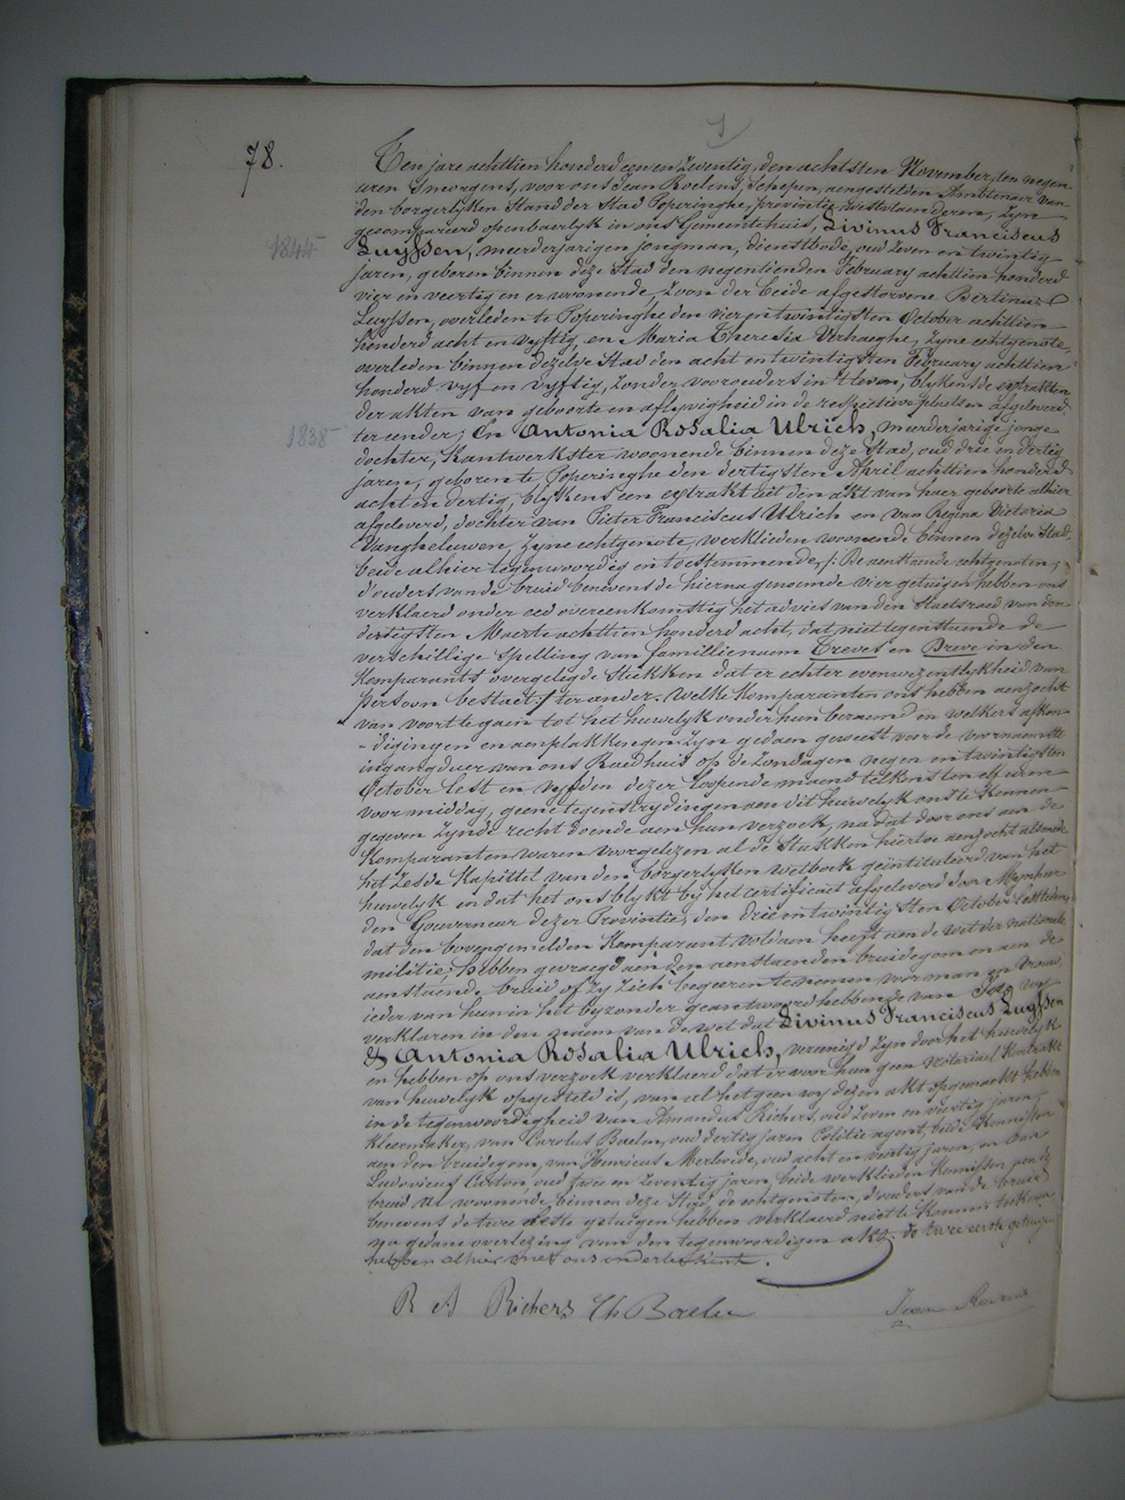 78.
Ten jare achttien honderd een en Zeventig, den achtsten November, ten negen
uren s'morgens, voor ons Jean Roelens, Schepen, aengestelden Ambtenaer van
den borgerlyken Stand der Stad Poperinghe, provintie Westvlaenderen, Zyn
gecompareerd openbaerlyk in ons Gemeentehuis, Livinus Franciscus
1844
Luyssen, meerderjarigen jongman, dienstbode, oud Zeven en twintig
jaren, geboren binnen deze Stad den negentienden February achttien honderd
vier en veertig en er woonende, Zoon der beide afgestorvene Bertinus
Luyssen, overleden te Poperinghe den vier en twintigsten October achttien
honderd acht en vyftig, en Maria Theresia Verhaeghe, Zyne echtgenote,
overleden binnen dezelve Stad den acht en twintigsten February achttien
honderd vyf en vyftig, Zonder voorouders in 't leven, blykens de extrakten
der akten van geboorte en aflyvigheid in de respectieve plaetsen afgeleverd
1838
ter eender; En Antonia Rosalia Ulrich, meerderjarige jonge
dochter, Kantwerkster woonende binnen deze Stad, oud drie en dertig
jaren, geboren te Poperinghe den dertigsten April achttien honderd
acht en dertig, blykens een extrakt uit den akt van haer geboorte alhier
afgeleverd, dochter van Pieter Franciscus Ulrich en van Regina Victoria
Vangheluwen, Zyne echtgenote, werklieden woonende binnen dezelve Stad,
beide alhier tegenwoordig en toestemmende, /: De aenstaende echtgenoten,
d'ouders van de bruid benevens de hierna genoemde vier getuigen hebben ons
verklaerd onder eed overeenkomstig het advies van den Staetsraed van den
dertigsten Maerte achttien honderd acht, dat niettegenstaende de
verschillige Spelling van famillienaem Treves en Dreve in den
Komparants overgelegde Stukken dat er echter evenwezentlykheid van
persoon bestaet:/ ter ander. Welke Komparanten ons hebben aenzocht
van voort te gaen tot het huwelyk onder hun beraemd en welkers afkon-
-digingen en aenplakkingen Zyn gedaen geweest voor de voornaemste
ingangdeur van ons Raedhuis op de Zondagen negen en twintigsten
October lest en vyfden dezer loopende maend telkens ten elf uren
voormiddag, geene tegenstrydingen aen dit huwelyk ons te Kennen
gegeven Zynde recht doende aen hun verzoek, na dat door ons aen de
Komparanten waren voorgelezen al de Stukken hiertoe aenzocht alsmede
het Zesde Kapittel van den borgerlyken Wetboek geïntituleerd van het
huwelyk en dat het ons blykt by het certificaet afgeleverd door Mynheer
den Gouverneur dezer Provintie, den drie en twintigsten October lestleden,
dat den bovengemelden Komparant voldaen heeft aen de wet der nationale
militie; hebben gevraegd aen den aenstaenden bruidegom en aen de
aenstaende bruid of Zy Zich begeeren te nemen voor man en vrouw,
ieder van hun in het byzonder geantwoord hebbende van Ja, wy
verklaren in den naem van de wet dat Livinus Franciscus Luyssen
& Antonia Rosalia Ulrich, vereenigd Zyn door het huwelyk
en hebben op ons verzoek verklaerd dat er voor hun geen notariael Kontrakt
van huwelyk opgesteld is, van al het geen wy dezen akt opgemaekt hebben
in de tegenwoordigheid van Amandus Richers, oud Zeven en veertig jaren
Kleermaker, van Carolus Baelen, oud dertig jaren Politie agent, beide Kennissen
aen den bruidegom, van Henricus Merlevede, oud acht en veertig jaren, en van
Ludovicus Carton, oud twee en Zeventig jaren, beide werklieden Kennissen aen de
bruid al woonende binnen deze Stad, de echtgenoten, d'ouders van de bruid
benevens de twee leste getuigen hebben verklaerd niet te Konnen teekenen
na gedane overlezing van den tegenwoordigen akt. de twee eerste getuigen
hebben alhier met ons onderteekent.
R A Richers Ch Baelen Jean Roelens